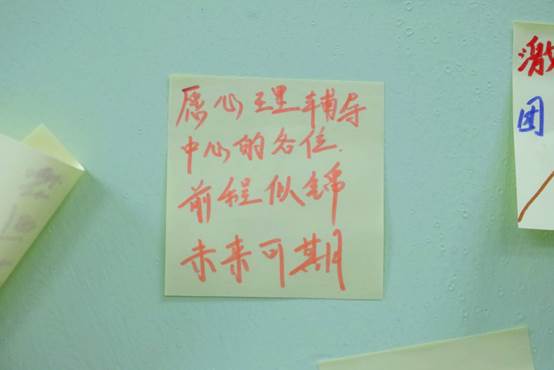 愿心理辅导
中心的各位.
前程似锦
未来可期
激
团